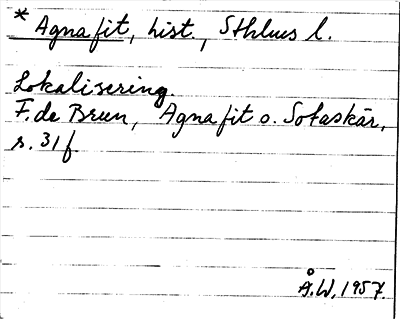 * Agnafit, hist., Sthlms l.
Lokalisering.
F. de Brun, Agnafit o. Sotaskär,
s. 31f
Å.W. 1957.